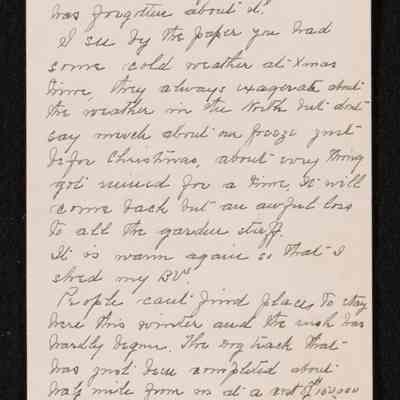 was forgotten about it."
I see by the paper you had
some cold weather at Xmas
time, they always exagerate about
the weather in the North but dont
say much about our freeze just
befor Christmas, about every thing
got ruined for a time. It will
come back but an awful loss
to all the garden stuff.
It is warm again so that I
shed my BVs.
People cant find places to stay
here this winter and the rush has
hardly begun. The dog track that
has just been completed about
half mile from us at a cost of $160,000